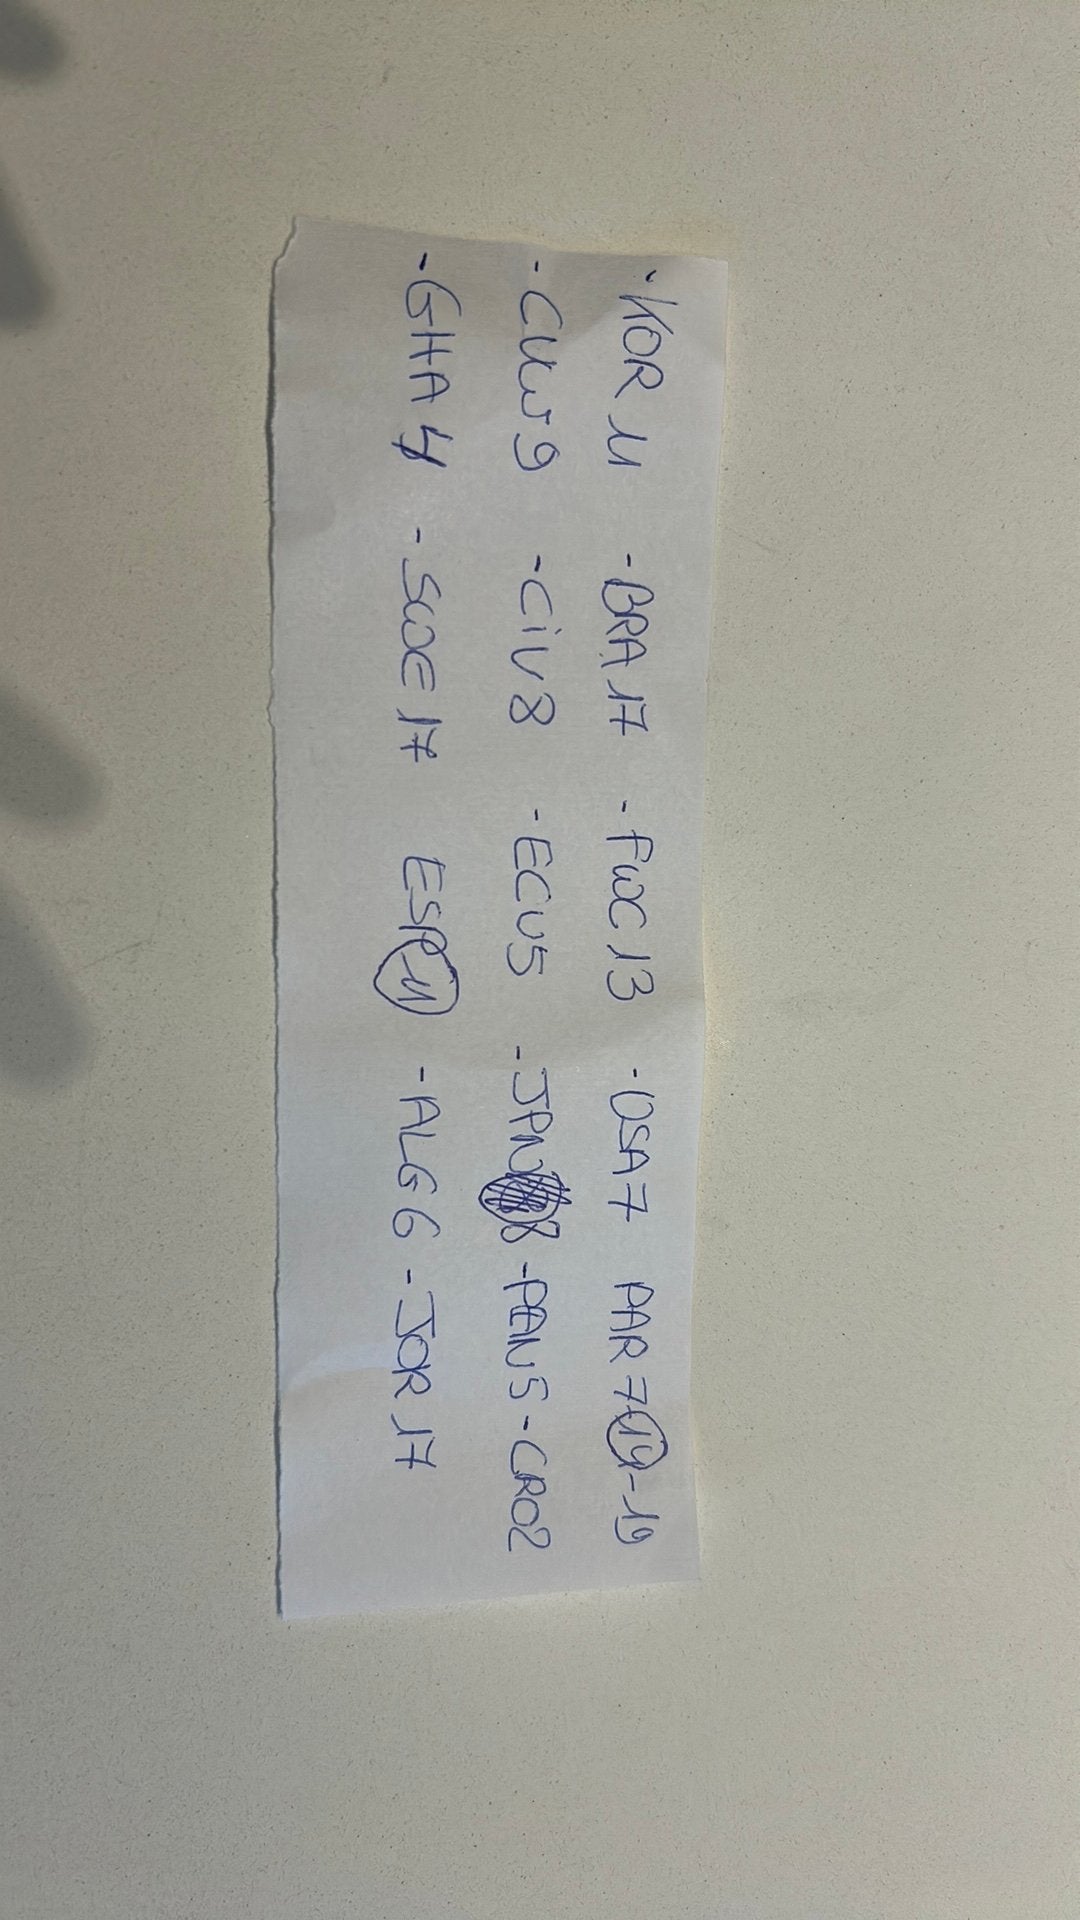 -KOR 11 -BRA 17 -FWC 13 -USA 7 PAR 7-14-19
-CUW 9 -CiV 8 -ECU 5 -JPN 8 -PAN 5 -CRO 2
-GHA 4 -SWE 17 ESP 11 -ALG 6 -JOR 17